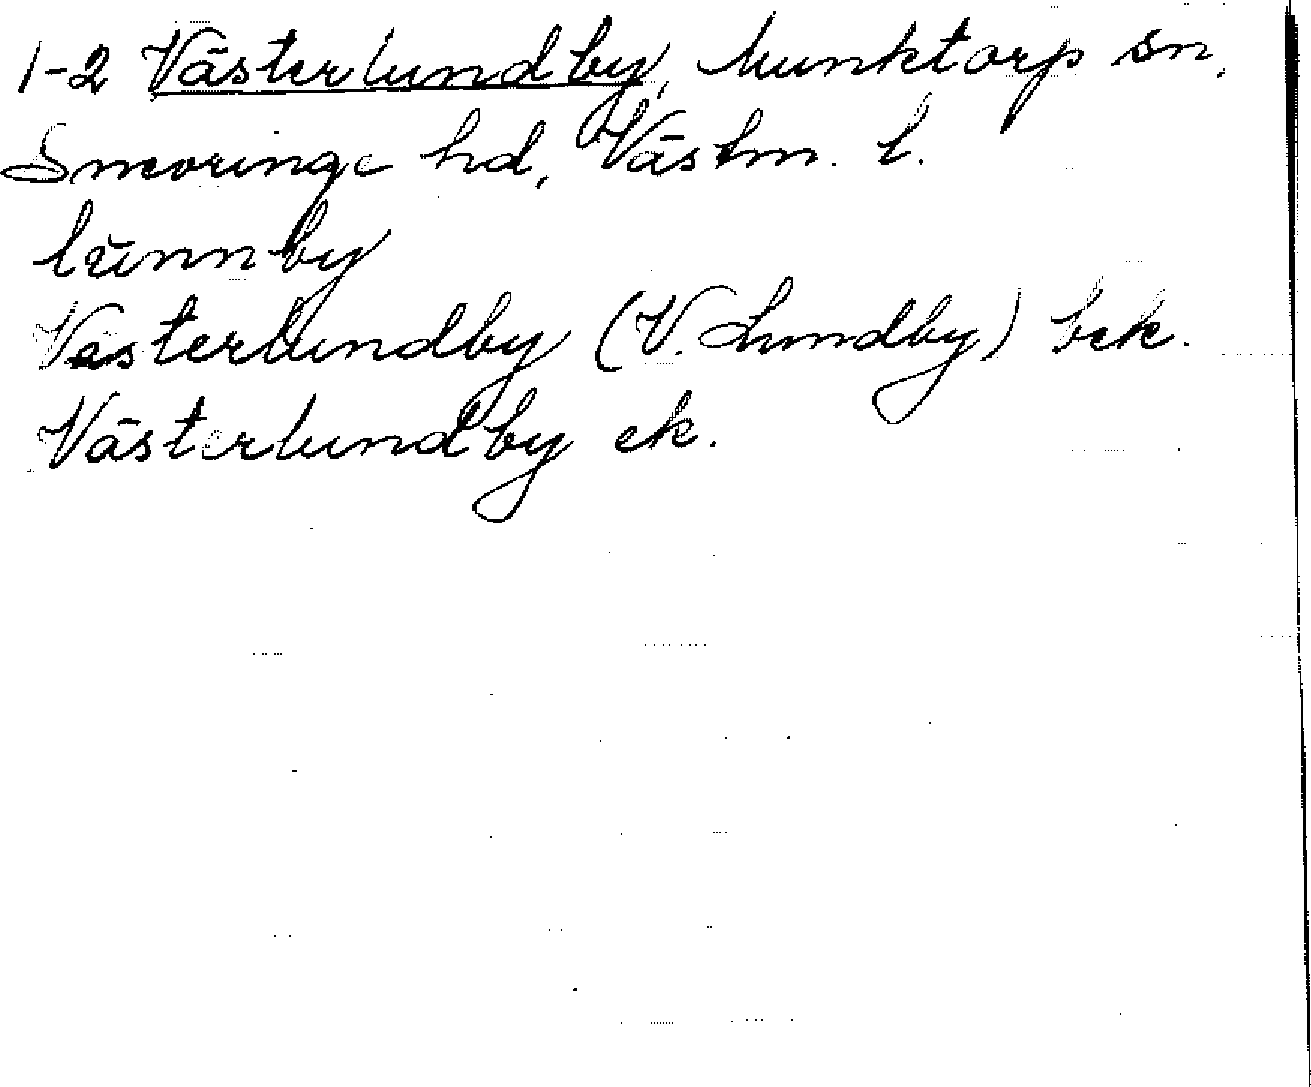 1-2 Västerlundby, Munktorp sn,
Snevringe hd, Västm. l.
lŭnnby
Västerlundby (V. Lundby) bek.
Västerlundby ek.